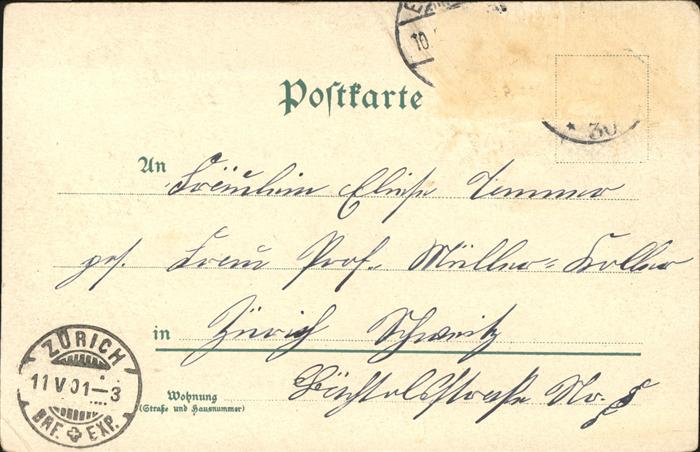 10
30
Postkarte
An Fräulein Elise Temmer
ges. Frau Prof. Müller-Koller
in Zürich Schweiz
Wohnung
(Straße und Hausnummer)
Bächtoldstrasse No.
ZÜRICH
11 V 01 – 3
BRF. EXP.